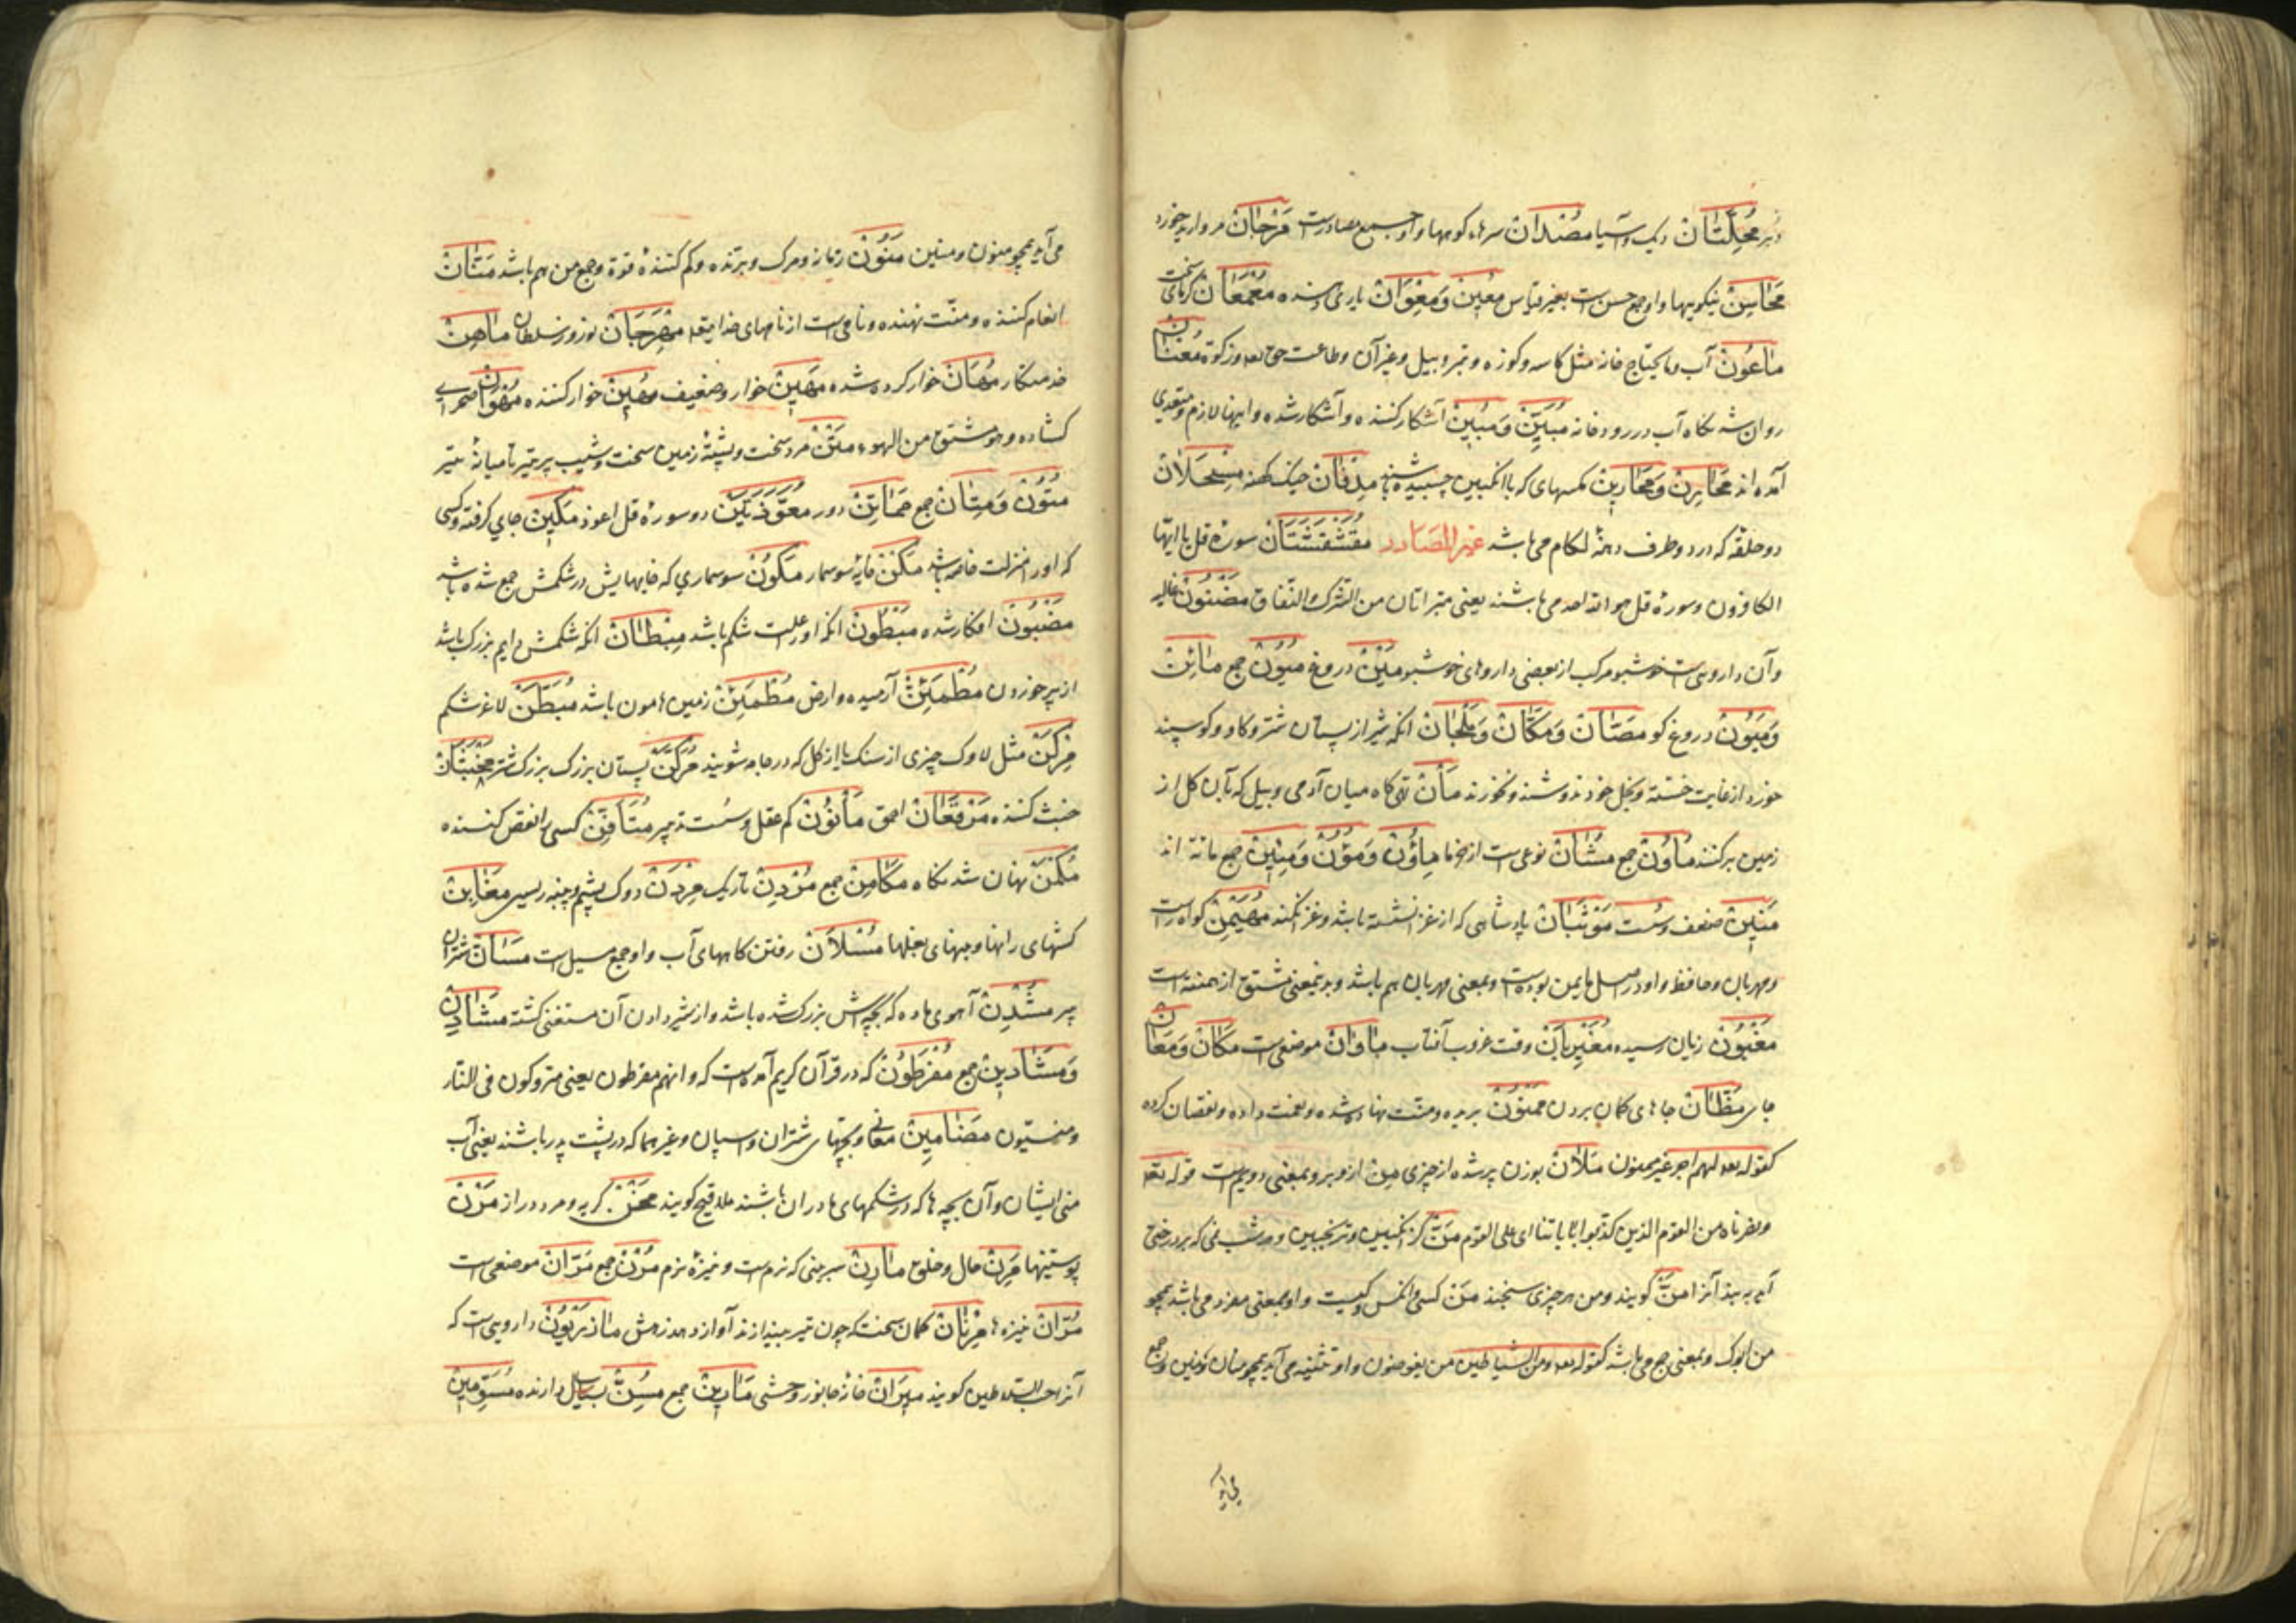 مُحِلَّتَانْ دیک و آسیا مُصْدَانْ سرهاء کوهها و او جمع مصادست مَرْجَانْ مروارید خورد
مَحَاسِنْ نیکوییها و او جمع حسن است بغیر قیاس مُعِیْن وَمِعْوَانْ یاری دهنده مَعْمَعَانْ کرمای سخت
مَاعُونْ آب و مایحتاج خانه مثل کاسه و کوزه و تبر و بیل و غیر آن و طاعت حق و زکوة مُعْنَانْ
روان شدنکاه آب در رودخانه مُبَیِّنْ وَمُبِیْن آشکار کننده و آشکار شده و اینها لازم و متعدی
آمده اند مَحَارِنْ وَمَحَارِیْن مکسهای که با انکبین چسبیده باشند مِدْفَانْ خیک کهنه مِسْحَلَانْ
دو حلقه که در دو طرف دهنۀ لکام می باشد غیر المصادر مُقَشْقِشَتَانْ سورۀ قل یا ایها
الکافرون و سورۀ قل هو الله احد می باشند یعنی متبراتان من الشرک و النفاق مَضْنُونْ غالیه
و آن داروییست خوشبو مرکب از بعضی داروهای خوشبو مَیْنْ دروغ مُیُوْنْ جمع مَائِنْ
وَمَیُوْنْ دروغ کو مَصَّانْ وَمَکَّانْ وَمَلْجَانْ انکه شیر از پستان شتر و کاو و کوسپند
خورد از غایت خسّت و بخل خود ندوشد و نخورند مَأنْ تهی کاه میان آدمی و بیل که بآن کل از
زمین برکنند مُاوُنْ جمع مُشَانْ نوعی ست از خرما مِاؤُنْ وَمُؤُنْ وَمِئِیْن جمع مانه اند
مَنِیْن ضعف و سست مَوْثَبَانْ پادشاهی که از غزا نشسته باشد و غزا نکند مُهَیْمِنْ کواه راست
و مهربان و حافظ و او در اصل مایمن بوده است و بمعنی مهربان هم باشد و بدینمعنی مشتق از هیمنه است
مَغْبُوْنْ زیان رسیده مُغَیْرِبَانْ وقت غروب آفتاب مَاوَانْ موضعی ست مَکَانْ وَمَعَانْ
جای مَظَانْ جاهای کمان بردن مَمْنُوْنْ بریده و منت نهاده شده و نعمت داده و نقصان کرده
کقوله لهم اجر غیر ممنون مَلْاٰنْ بوزن پر شده از چیزی مِنْ از و بر و بمعنی دویم است قوله تعه
و نصرناه من القوم الذین کذبوا بایاتنا ای علی القوم مَنّ کز انکبین و ترنجبین و هر شب نمی که بر درختی
آید به بندد آنرا مَنّ کویند و من هر چیزی سنجند مَنْ کسی و انکس و کیست و او بمعنی مفرد می باشد همچو
من ابوک و بمعنی جمع می باشد کقوله و من الشیاطین من یغوصون و او تثنیه می آید همچو منان و منین و جمع
می آید
می آید همچو منون و منین مَنُوْنْ زمانه و مرک و برنده و کم کنندۀ قوة و جمع من هم باشد مَنَّانْ
انعام کننده و منت نهنده و نامی ست از نامهای خدایتعه مِهْرَجَانْ نوروز سلطان مَاهِنْ
خدمتکار مُهَانْ خوار کرده شده مَهِیْن خوار و ضعیف مُهِیْن خوار کننده مُهْوَانْ صحرای
کشاده و هو مشتق من الهوء مَتْنْ مرد سخت و پشتۀ زمین سخت و شیب پر تیر تا میانۀ تیر
مُتُوْنْ وَمِتَانْ جمع مُمَاتِنْ دور مُعَوَّذَتَیْن دو سورۀ قل اعوذ مَکِیْن جای کرفته و کسی
که او را منزلت خاصه باشد مَکْنْ خایۀ سوسمار مَکُوْنْ سوسماری که خایهایش در شکمش جمع شده باشد
مَضْبُوْنْ افکار شده مَبْطُوْنْ انکه او را علت شکم باشد مِبْطَانْ انکه شکمش دایم بزرک باشد
از پر خوردن مُطْمَئِنّ آرمیده و ارض مُطْمَئِنَّ زمین هامون باشد مُبَطَّنْ لاغر شکم
مِرْکَنْ مثل لاوک چیزی از سنک یا از کل که در جامه شویند مُرَکَّنْ پستان بزرک بزرک شتر مُخَبْثَانْ
خبث کننده مَرْقَعَانْ احمق مَأفُوْنْ کم عقل و سست تدبیر مُتَأفِنْ کسی را نقص کننده
مَکْمَنْ نهان شدنکاه مَکَامِنْ جمع مُرْدِنْ تاریک مِرْدَنْ دوک پشم و پنبه ریسی مَغَابِنْ
کشهای رانها و بنهای بغلها مُسْلَانْ رفتن کاههای آب و او جمع مسیل است مَسَانّ شتران
پیر مُشْدِنْ آهوی ماده که بچه اش بزرک شده باشد و از شیر دادن آن مستغنی کشته مَشَادِنْ
وَمَشَادِیْن جمع مُفْرَطُوْنْ که در قرآن کریم آمده است که و انهم مفرطون یعنی متروکون فی النار
و منسیّون مَضَامِیْن معانی و بچهای شتران و اسپان و غیرهما که در پشت پدر باشند یعنی آب
منی ایشان و آن بچه ها که در شکمهای مادران باشند ملاقیح کویند مَخْنْ کریه و مرد دراز مَرْنْ
پوستینها مَرِنْ حال و خلق مَارِنْ سر بینی که نرم است و نیزۀ نرم مُرْنْ جمع مَرَّانْ موضعی ست
مُرَّانْ نیزه ها مِرْنَانْ کمان سخت که چون تیر بیندازند آواز دهد زهش مَازَرْیُوْنْ داروییست که
آنرا حب السلاطین کویند مِیْرَانْ خانۀ جانور وحشی مَارِیْن جمع مُسِنّ بسال دارنده مُسَوِّمِیْن